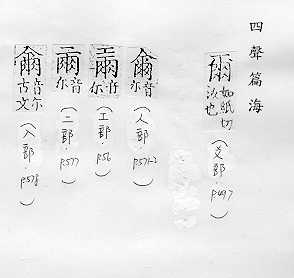 四聲篇海
爾 如紙切 汝也 （爻部 p.497）
音尔 （人部 p.571-2）
音尔 （工部 p.56）
音尔 （二部 p.577）
音尔 古文 （入部 p.578）